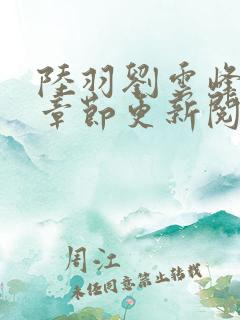 陸羽劉雲峰
章節更新閱
周江
未经同意禁止转载